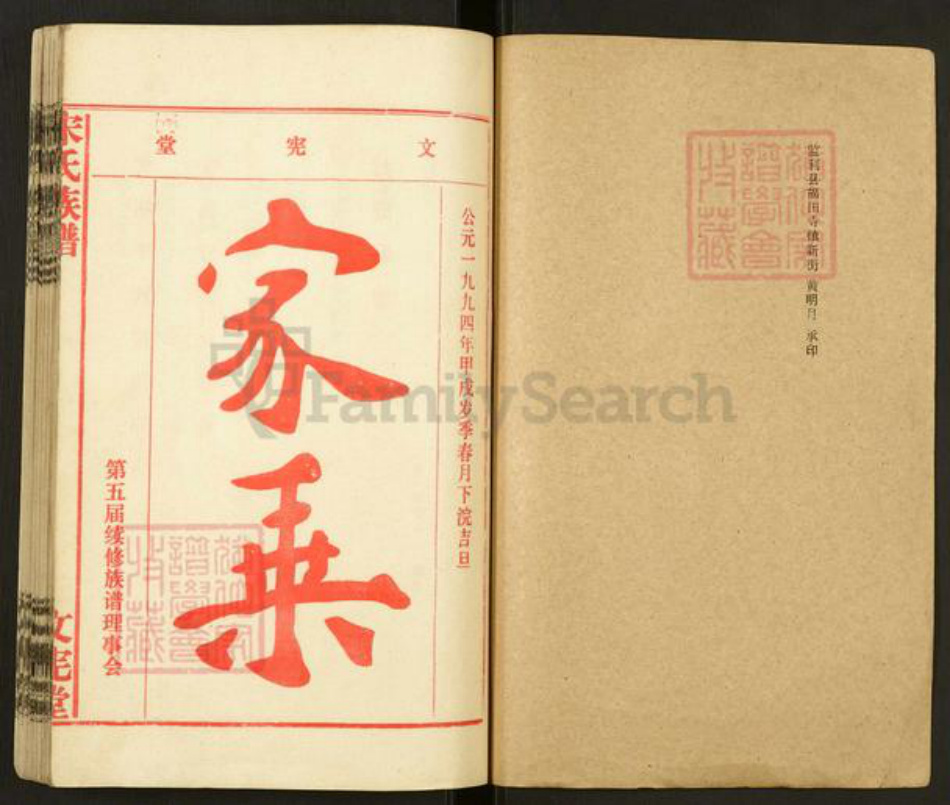 监利县福田寺镇新街 黄明月 承印
文宪堂
公元一九九四年甲戌岁季春月下浣吉旦
家乘
第五届续修族谱理事会
宋氏族谱
文宪堂
譜學會
收藏
譜學會
收藏
FamilySearch